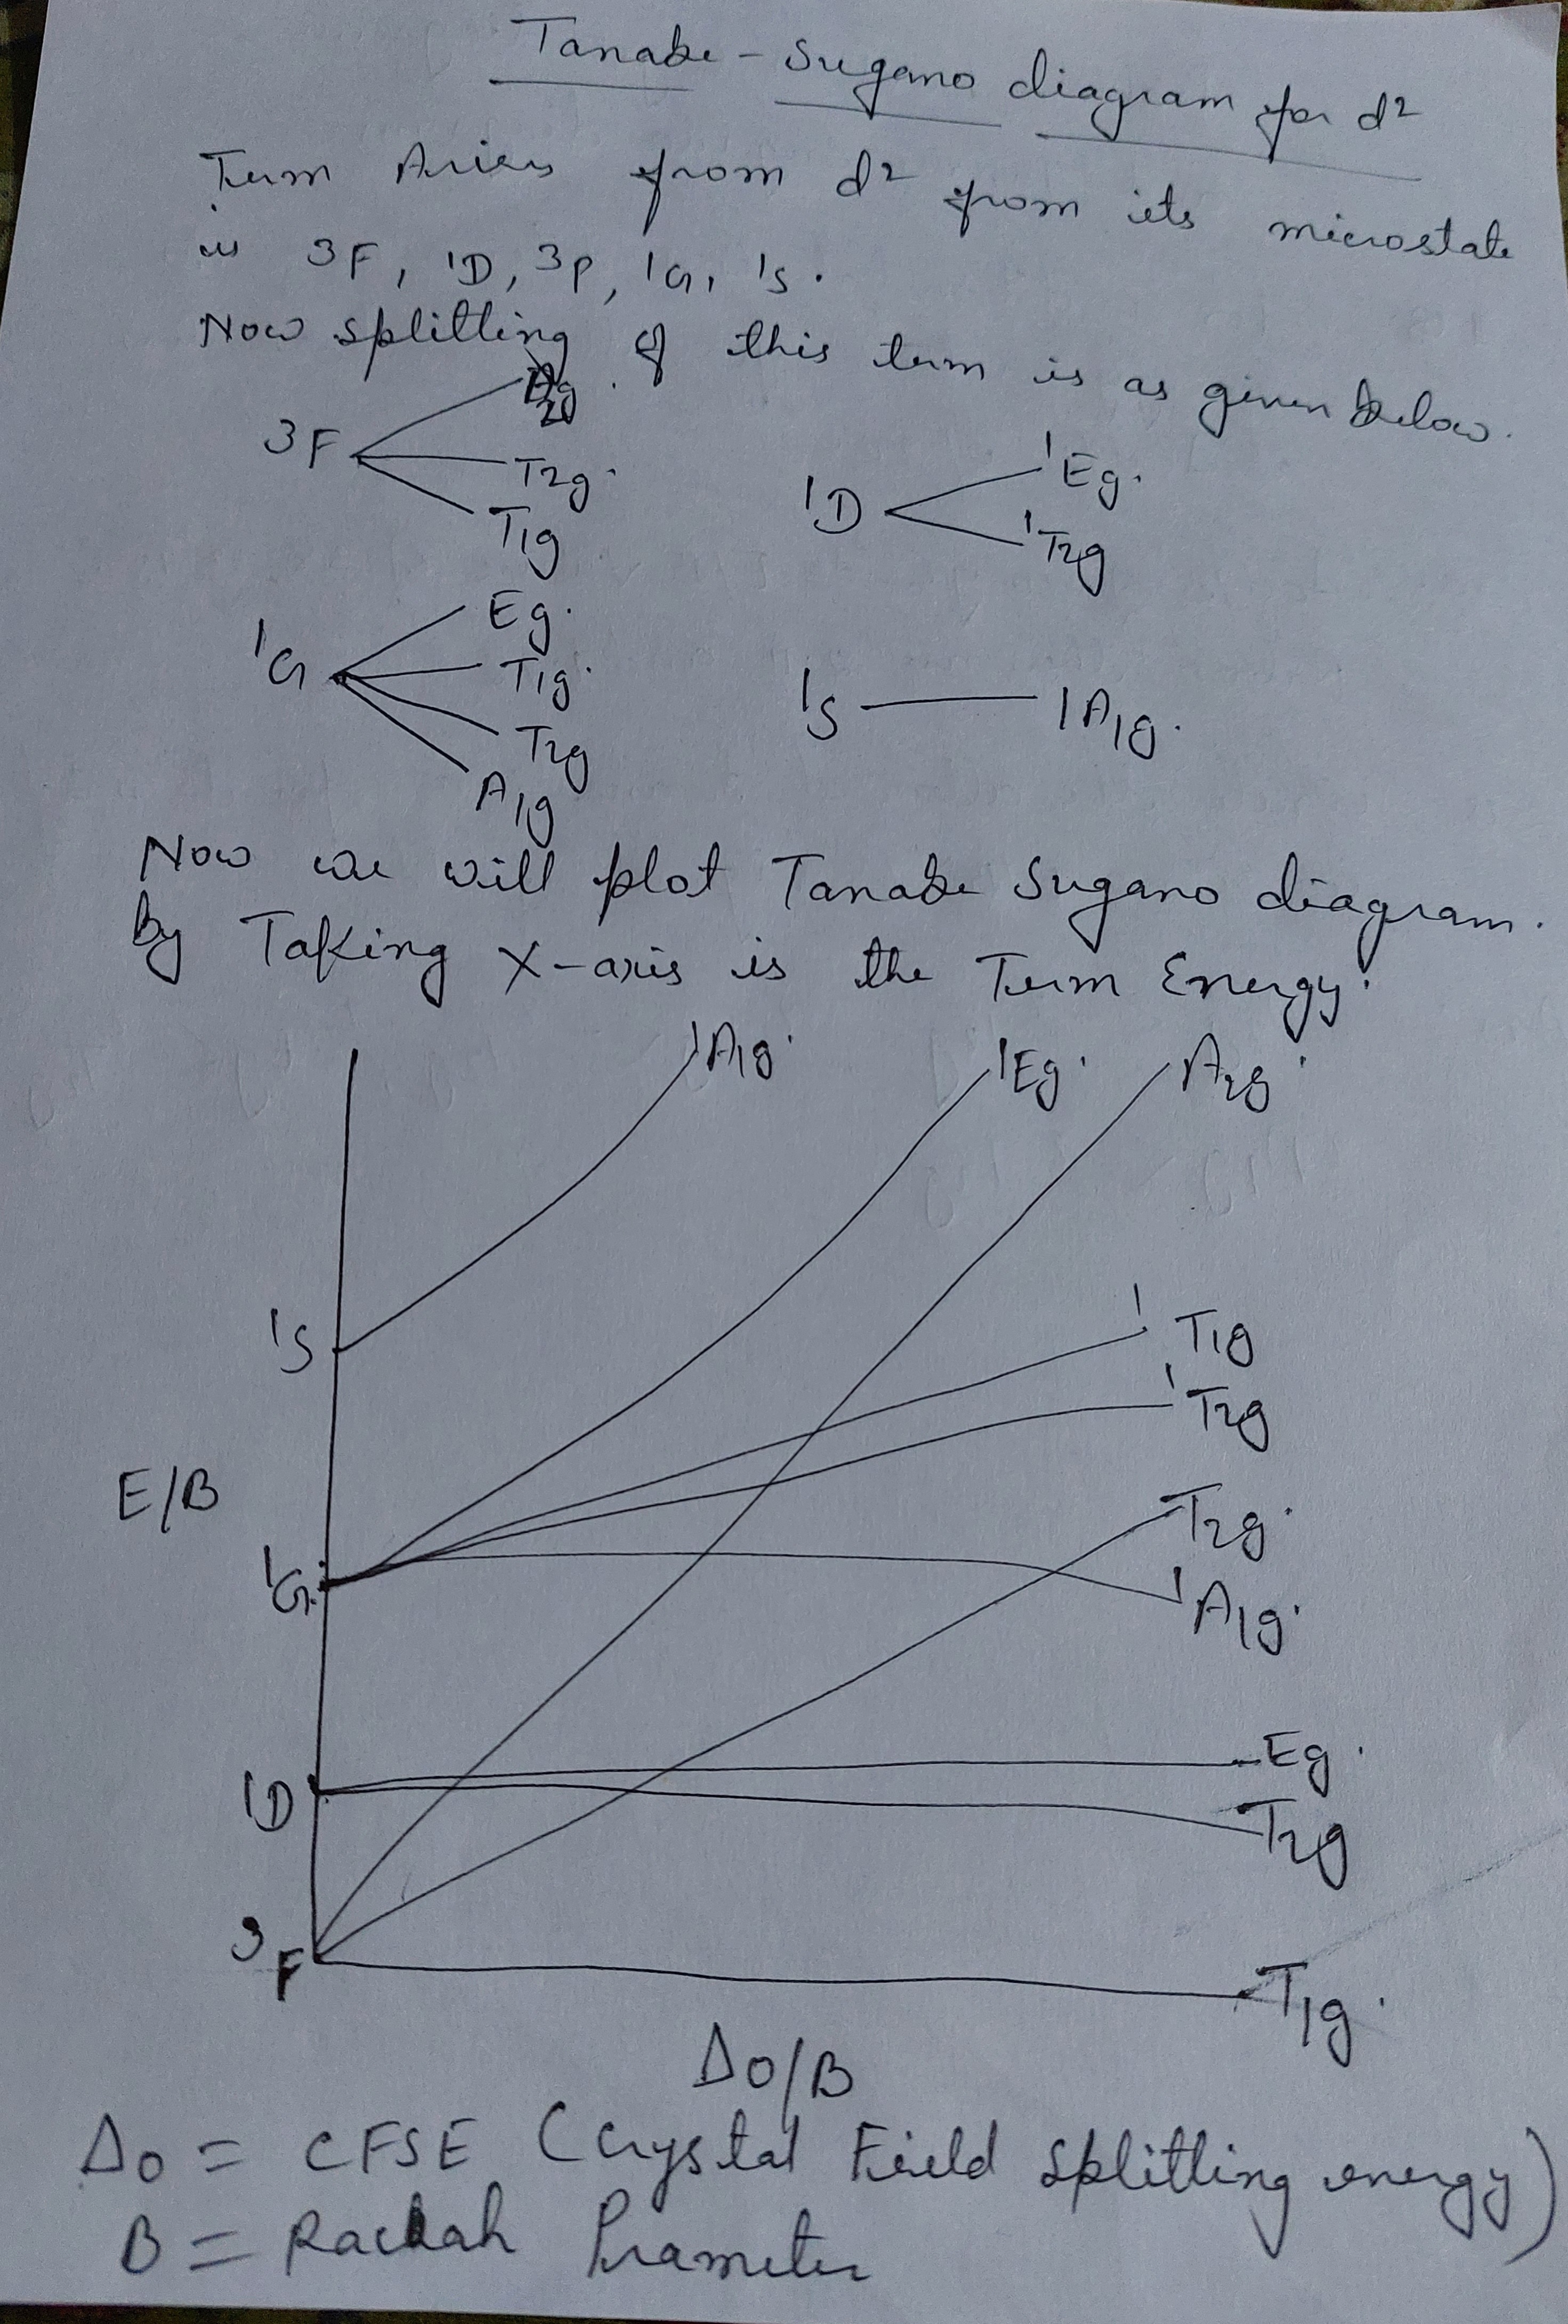 Tanabe - Sugano diagram for d2
Term Arises from d2 from its microstate
is 3F, 1D, 3P, 1G, 1S.
Now splitting of this term is as given below.
3F
2g
T2g.
T1g
1D
1Eg.
1T2g
1G
Eg.
T1g.
T2g
A1g
1S
1A1g.
Now we will plot Tanabe Sugano diagram.
by Taking X-axis is the Term Energy.
1A1g.
1Eg.
A2g
1S
1T1g
1T2g
E/B
T2g.
1G
1A1g.
Eg.
1D
T2g
3F
T1g.
Δo/B
Δo = CFSE (Crystal Field splitting energy)
B = Racah Prameter